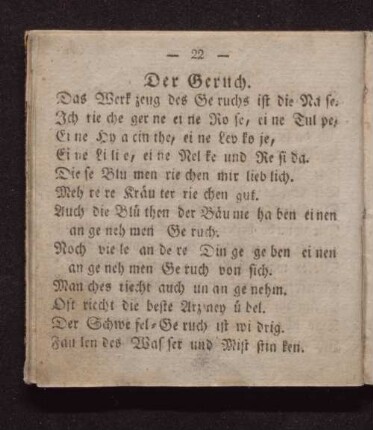 — 22 —
Der Geruch.
Das Werk zeug des Ge ruchs ist die Na se.
Ich rie che ger ne ei ne Ro se, ei ne Tul pe,
Ei ne Hy a cin the, ei ne Lev ko je,
Ei ne Li lie, ei ne Nel ke und Re si da.
Die se Blu men rie chen mir lieb lich.
Meh re re Kräu ter rie chen gut.
Auch die Blü then der Bäu me ha ben ei nen
an ge neh men Ge ruch.
Noch vie le an de re Din ge ge ben ei nen
an ge neh men Ge ruch von sich.
Man ches riecht auch un an ge nehm.
Oft riecht die beste Arzney ü bel.
Der Schwe fel-Ge ruch ist wi drig.
Fau len des Was ser und Mist stin ken.